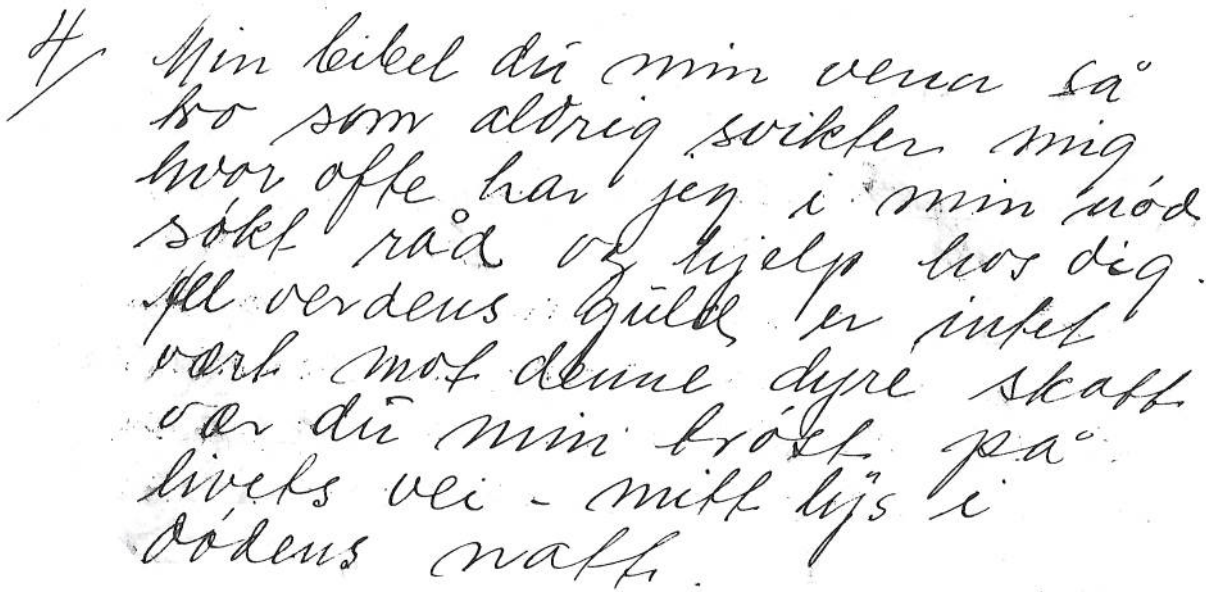 4/ Min bibel du min venn så
tro som aldrig svikter mig
hvor ofte har jeg i min nód
sókt råd og hjelp hos dig.
All verdens guld er intet
vært mot denne dyre skatt
vær du min tróst på
livets vei - mitt lys i
dódens natt.